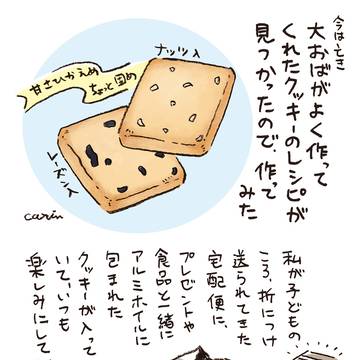 今は亡き
大おばがよく作って
くれたクッキーのレシピが
見つかったので、作って
みた
ナッツ入
甘さひかえめ
ちょっと固め
レーズン入
carin
私が子どもの
ころ、折につけ
送られてきた
宅配便に、
プレゼントや
食品と一緒に
アルミホイルに
包まれた
クッキーが入って
いて、いつも
楽しみにして